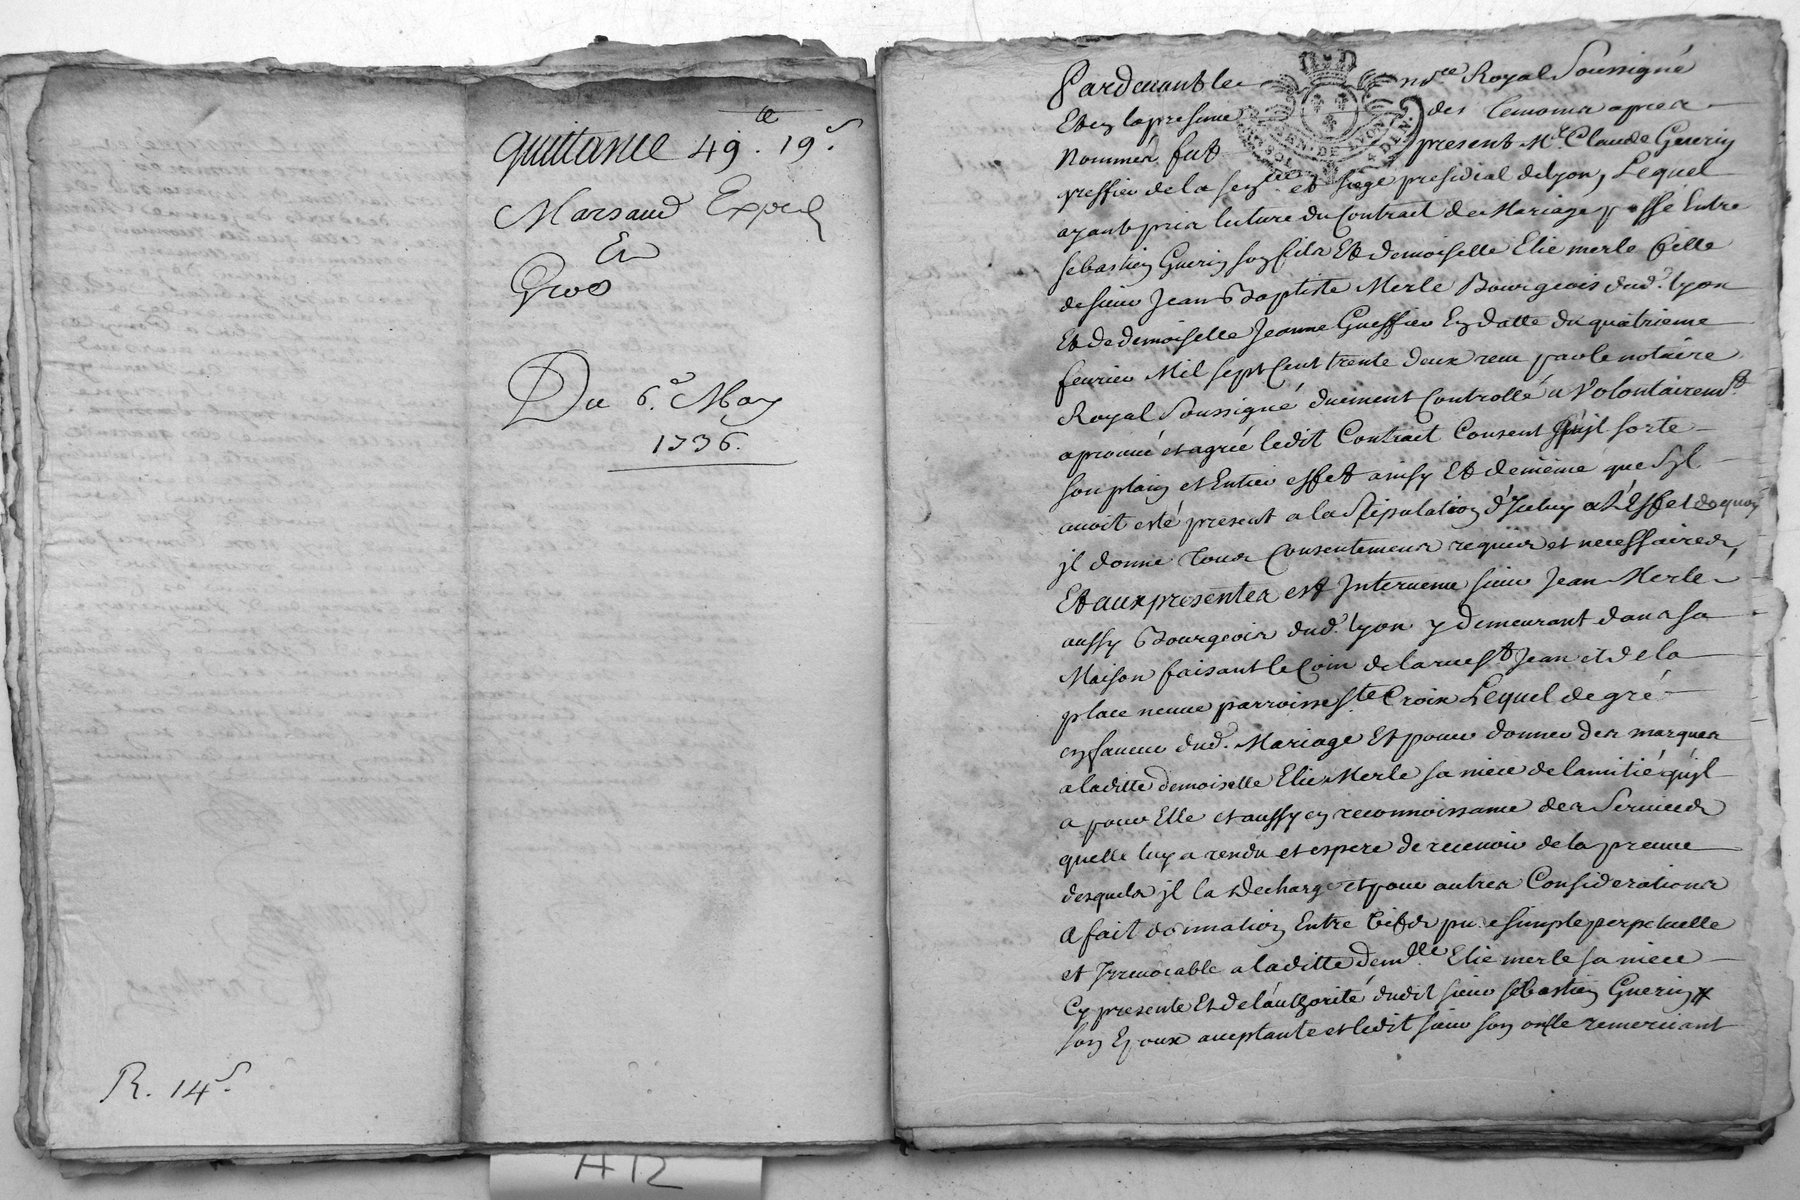 quittance 49.lt 19.s
Marsaud
Et
Gros
Du 6.e May
1736.
R. 14s.
Pardevant le no.re Royal Soussigné
Et en la presence des temoins apres
nommés fut present M.e Claude Guerin
greffier de la Sen.lle et siege presidial de Lyon, Lequel
ayant pris lecture du Contract de Mariage passé Entre
sebastien Guerin son fils Et demoiselle Elie merle fille
de sieur Jean Baptiste Merle Bourgeois dud. Lyon
Et de demoiselle Jeanne Gueffier En datte du quatrieme
fevrier Mil sept Cent trente deux receu par le notaire
Royal Soussigné duement Controllé a Volontairemt.
aprouvé et agréé ledit Contract Consent quil sorte
son plain et Entier effet ainsy Et de meme que Sil
avoit esté present a la Stipulation d'Iceluy a L'Effet de quoy
jl donne tous Consentemens requis et necessaires,
Et aux presentes est Intervenu sieur Jean Merle
aussy Bourgeois dud. Lyon y demeurant dans sa
Maison faisant le Coin de la rue St Jean et de la
place neuve parroisse Ste Croix Lequel de gré
en faveur dud. Mariage Et pour donner des marques
a laditte demoiselle Elie Merle sa niece de lamitié qu'jl
a pour Elle et aussy en reconnoissance des Services
quelle luy a rendu et espere de recevoir de la preuve
desquels jl la decharge et pour autres Considerations
a fait donnation Entre Vifs pure simple perpetuelle
et Irrevocable a laditte dem.lle Elie merle sa niece
Cy presente Et de l'authorité dudit sieur sebastien Guerin
son Epoux acceptante et ledit sieur son oncle remerciant
H12